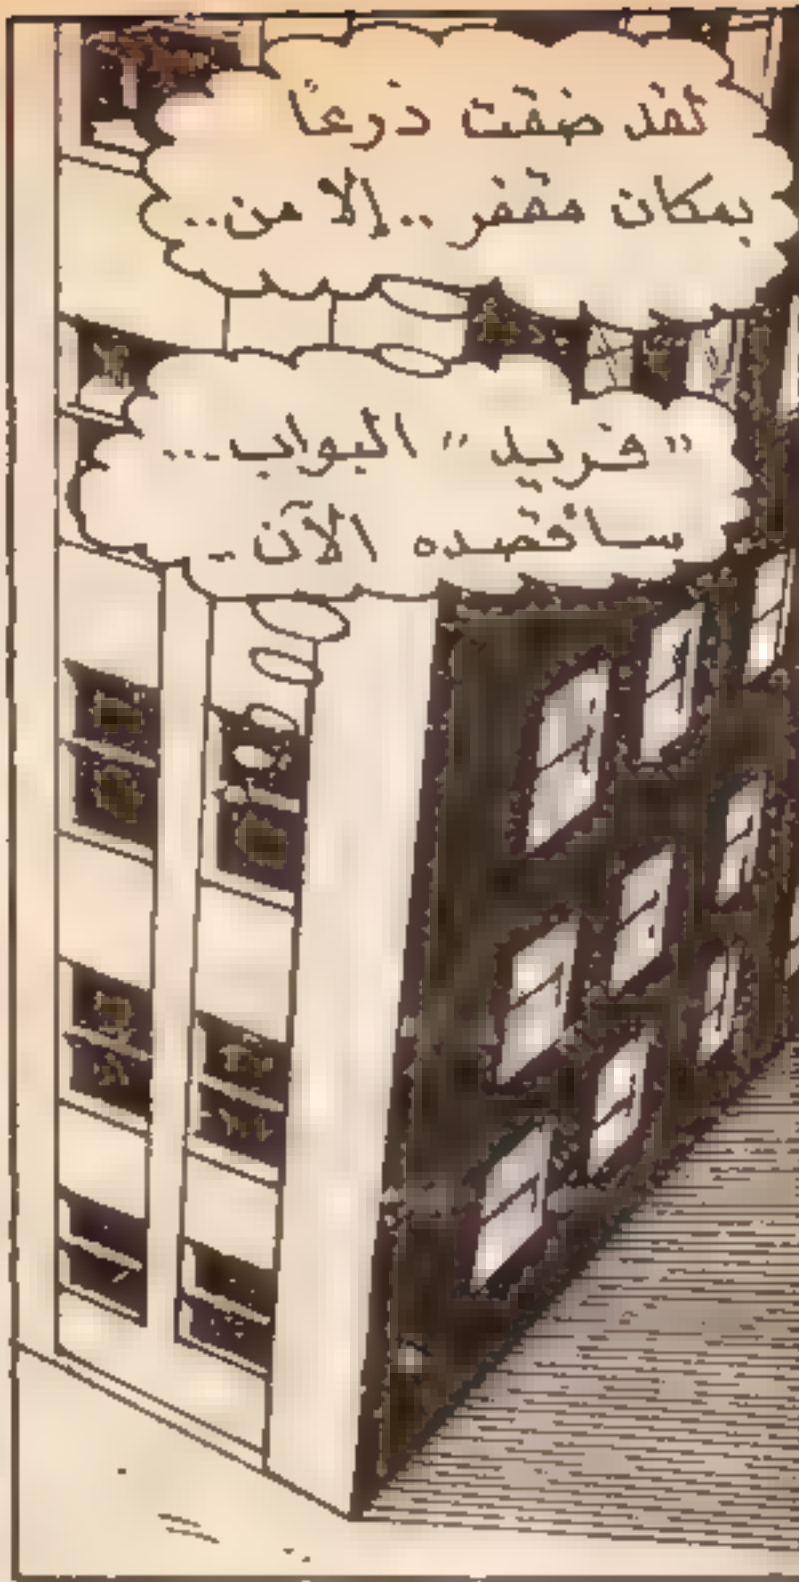 لقد ضقت ذرعًا
بمكان مقفر ..إلا من..
"فريد" البواب...
سأقصده الآن..